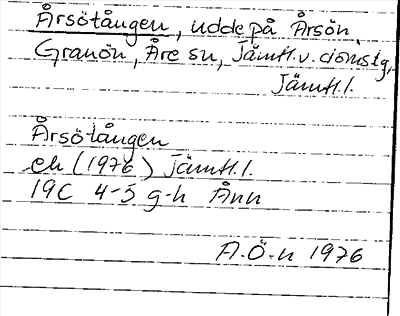 Årsötången, udde på Årsön,
Granön, Åre sn, Jämtl.v. domsg,
Jämtl.l.
Årsötången
ek (1976) Jämtl.l.
19C 4-5 g-h Ånn
A.Ö-n 1976